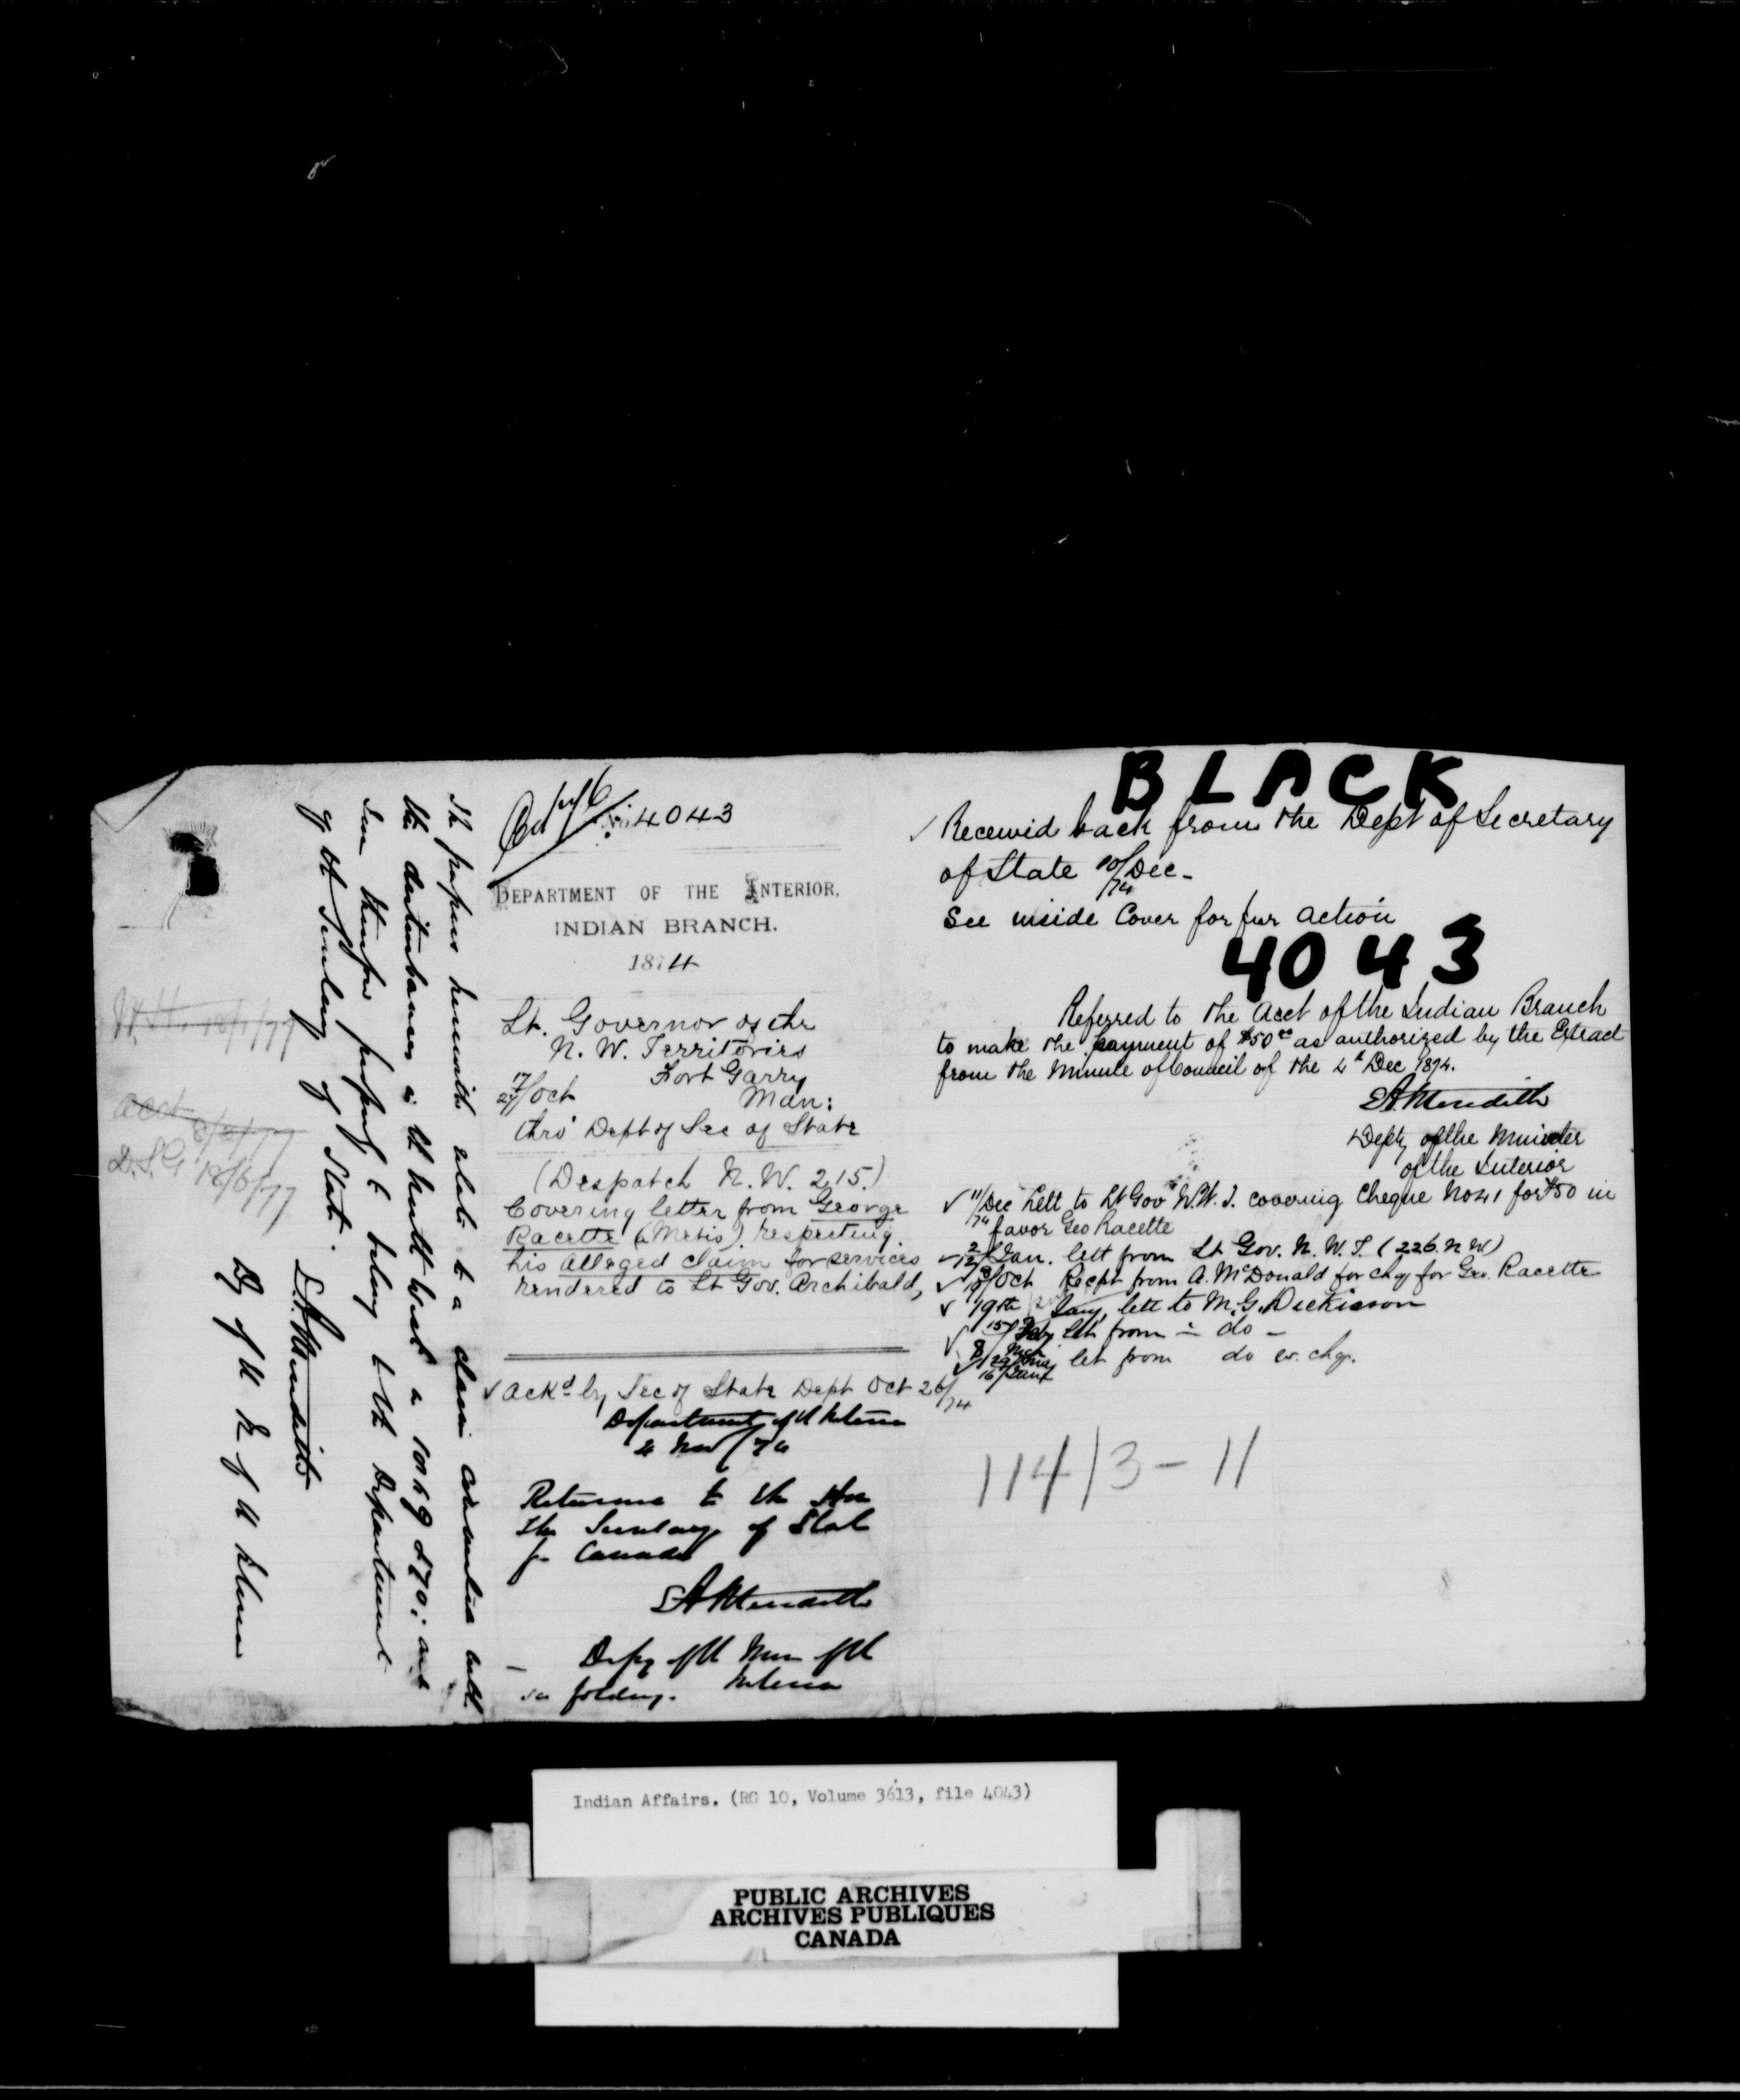 The papers herewith relate to a claim connected with
the disturbances in the North West in 1869 & 70: and
seem therefore properly to belong to the Department
of the Secretary of State.
E.A. Meredith
Dy of the M of the Interior
W. H. 18/1/77
acct 8/2/77
D.S.G. 18/6/77
4043
DEPARTMENT OF THE INTERIOR,
INDIAN BRANCH.
1874
Lt. Governor of the
N. W. Territories
Fort Garry
17/27/Oct Man:
thro' Dept of Sec of State
(Despatch N. W. 215.)
Covering letter from George
Racette (a Metis) respecting
his alleged claim for services
rendered to Lt Gov. Archibald,
✓ Ackd by Sec of State Dept Oct 26/74
Department of the Interior
4 Nov/74
Returned to the Hon
the Secretary of State
for Canada
EA Meredith
Depy of the Min of the
Interior
see folding.
BLACK
✓ Received back from the Dept of Secretary
of State 10/Dec/74 -
See inside Cover for fur action
4043
Referred to the Acct of the Indian Branch
to make the payment of $50 00 as authorized by the Extract
from the Minute of Council of the 4th Dec 1874.
EA Meredith
Depty of the Minister
of the Interior
✓ 11/Dec/74 Lett to Lt Gov N.W.T. covering Cheque No 41 for $50 in
favor Geo Racette
2/12/Jan. lett from Lt Gov. N. W. T. (226. N W)
✓ Oct Recpt from A. McDonald for chq for Geo. Racette
✓ 19th Jany, lett to M. G. Dickieson
✓ 15/ Feby let from - do -
✓ let from do w. chq.
114/3-11
Indian Affairs. (RG 10, Volume 3613, file 4043)
PUBLIC ARCHIVES
ARCHIVES PUBLIQUES
CANADA